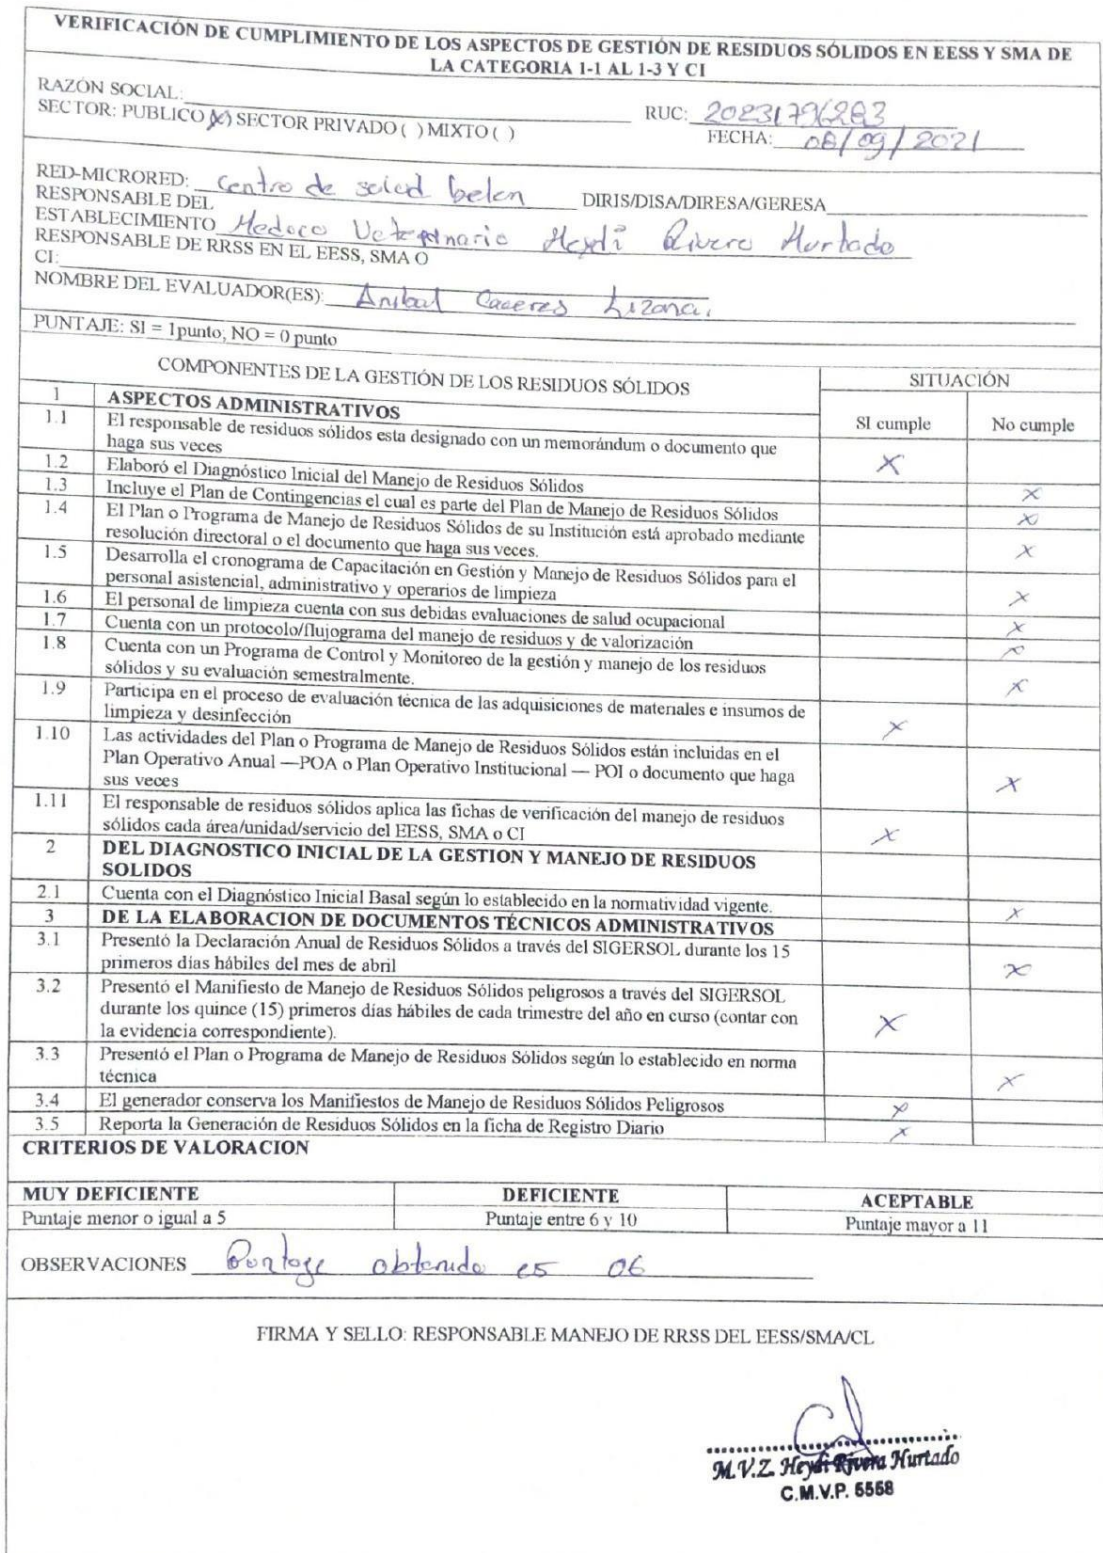 VERIFICACIÓN DE CUMPLIMIENTO DE LOS ASPECTOS DE GESTIÓN DE RESIDUOS SÓLIDOS EN EESS Y SMA DE
LA CATEGORIA 1-1 AL 1-3 Y CI
RAZÓN SOCIAL:
RUC: 20231796283
SECTOR: PUBLICO (X) SECTOR PRIVADO ( ) MIXTO ( )
FECHA: 08/09/2021
RED-MICRORED: Centro de salud belen DIRIS/DISA/DIRESA/GERESA
RESPONSABLE DEL
ESTABLECIMIENTO Medoco Veterinario Heydi Rivera Hurtado
RESPONSABLE DE RRSS EN EL EESS, SMA O
CI:
NOMBRE DEL EVALUADOR(ES): Anibal Caceres Lizana.
PUNTAJE: SI = 1punto; NO = 0 punto
COMPONENTES DE LA GESTIÓN DE LOS RESIDUOS SÓLIDOS SITUACIÓN
1 ASPECTOS ADMINISTRATIVOS SI cumple No cumple
1.1 El responsable de residuos sólidos esta designado con un memorándum o documento que
haga sus veces X
1.2 Elaboró el Diagnóstico Inicial del Manejo de Residuos Sólidos X
1.3 Incluye el Plan de Contingencias el cual es parte del Plan de Manejo de Residuos Sólidos X
1.4 El Plan o Programa de Manejo de Residuos Sólidos de su Institución está aprobado mediante
resolución directoral o el documento que haga sus veces. X
1.5 Desarrolla el cronograma de Capacitación en Gestión y Manejo de Residuos Sólidos para el
personal asistencial, administrativo y operarios de limpieza X
1.6 El personal de limpieza cuenta con sus debidas evaluaciones de salud ocupacional X
1.7 Cuenta con un protocolo/flujograma del manejo de residuos y de valorización X
1.8 Cuenta con un Programa de Control y Monitoreo de la gestión y manejo de los residuos
sólidos y su evaluación semestralmente. X
1.9 Participa en el proceso de evaluación técnica de las adquisiciones de materiales e insumos de
limpieza y desinfección X
1.10 Las actividades del Plan o Programa de Manejo de Residuos Sólidos están incluidas en el
Plan Operativo Anual —POA o Plan Operativo Institucional — POI o documento que haga
sus veces X
1.11 El responsable de residuos sólidos aplica las fichas de verificación del manejo de residuos
sólidos cada área/unidad/servicio del EESS, SMA o CI X
2 DEL DIAGNOSTICO INICIAL DE LA GESTION Y MANEJO DE RESIDUOS
SOLIDOS
2.1 Cuenta con el Diagnóstico Inicial Basal según lo establecido en la normatividad vigente. X
3 DE LA ELABORACION DE DOCUMENTOS TÉCNICOS ADMINISTRATIVOS
3.1 Presentó la Declaración Anual de Residuos Sólidos a través del SIGERSOL durante los 15
primeros días hábiles del mes de abril X
3.2 Presentó el Manifiesto de Manejo de Residuos Sólidos peligrosos a través del SIGERSOL
durante los quince (15) primeros días hábiles de cada trimestre del año en curso (contar con
la evidencia correspondiente). X
3.3 Presentó el Plan o Programa de Manejo de Residuos Sólidos según lo establecido en norma
técnica X
3.4 El generador conserva los Manifiestos de Manejo de Residuos Sólidos Peligrosos X
3.5 Reporta la Generación de Residuos Sólidos en la ficha de Registro Diario X
CRITERIOS DE VALORACION
MUY DEFICIENTE DEFICIENTE ACEPTABLE
Puntaje menor o igual a 5 Puntaje entre 6 y 10 Puntaje mayor a 11
OBSERVACIONES Puntaje obtenido es 06
FIRMA Y SELLO: RESPONSABLE MANEJO DE RRSS DEL EESS/SMA/CL
M.V.Z. Heydi Rivera Hurtado
C.M.V.P. 5568